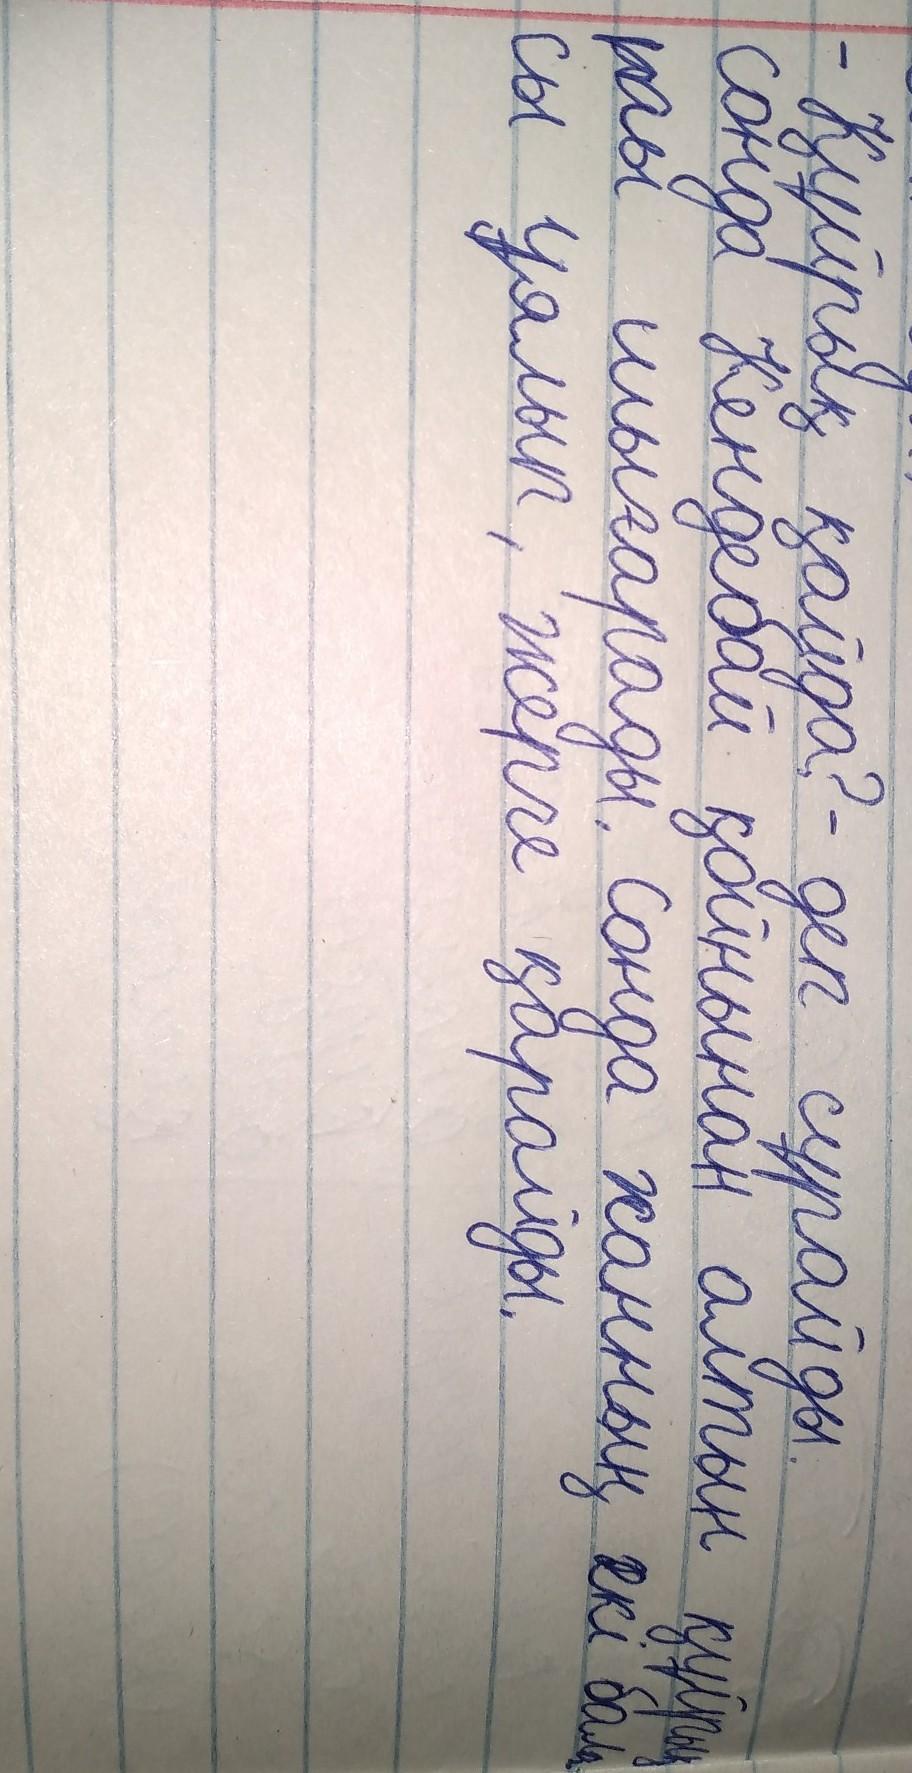 - Құйрық қайда? - деп сұрайды.
сонда Кендебай қойнынан алтын құйрық
ты шығарады. Сонда ханның екі бала
сы ұялып, жерге қарайды.